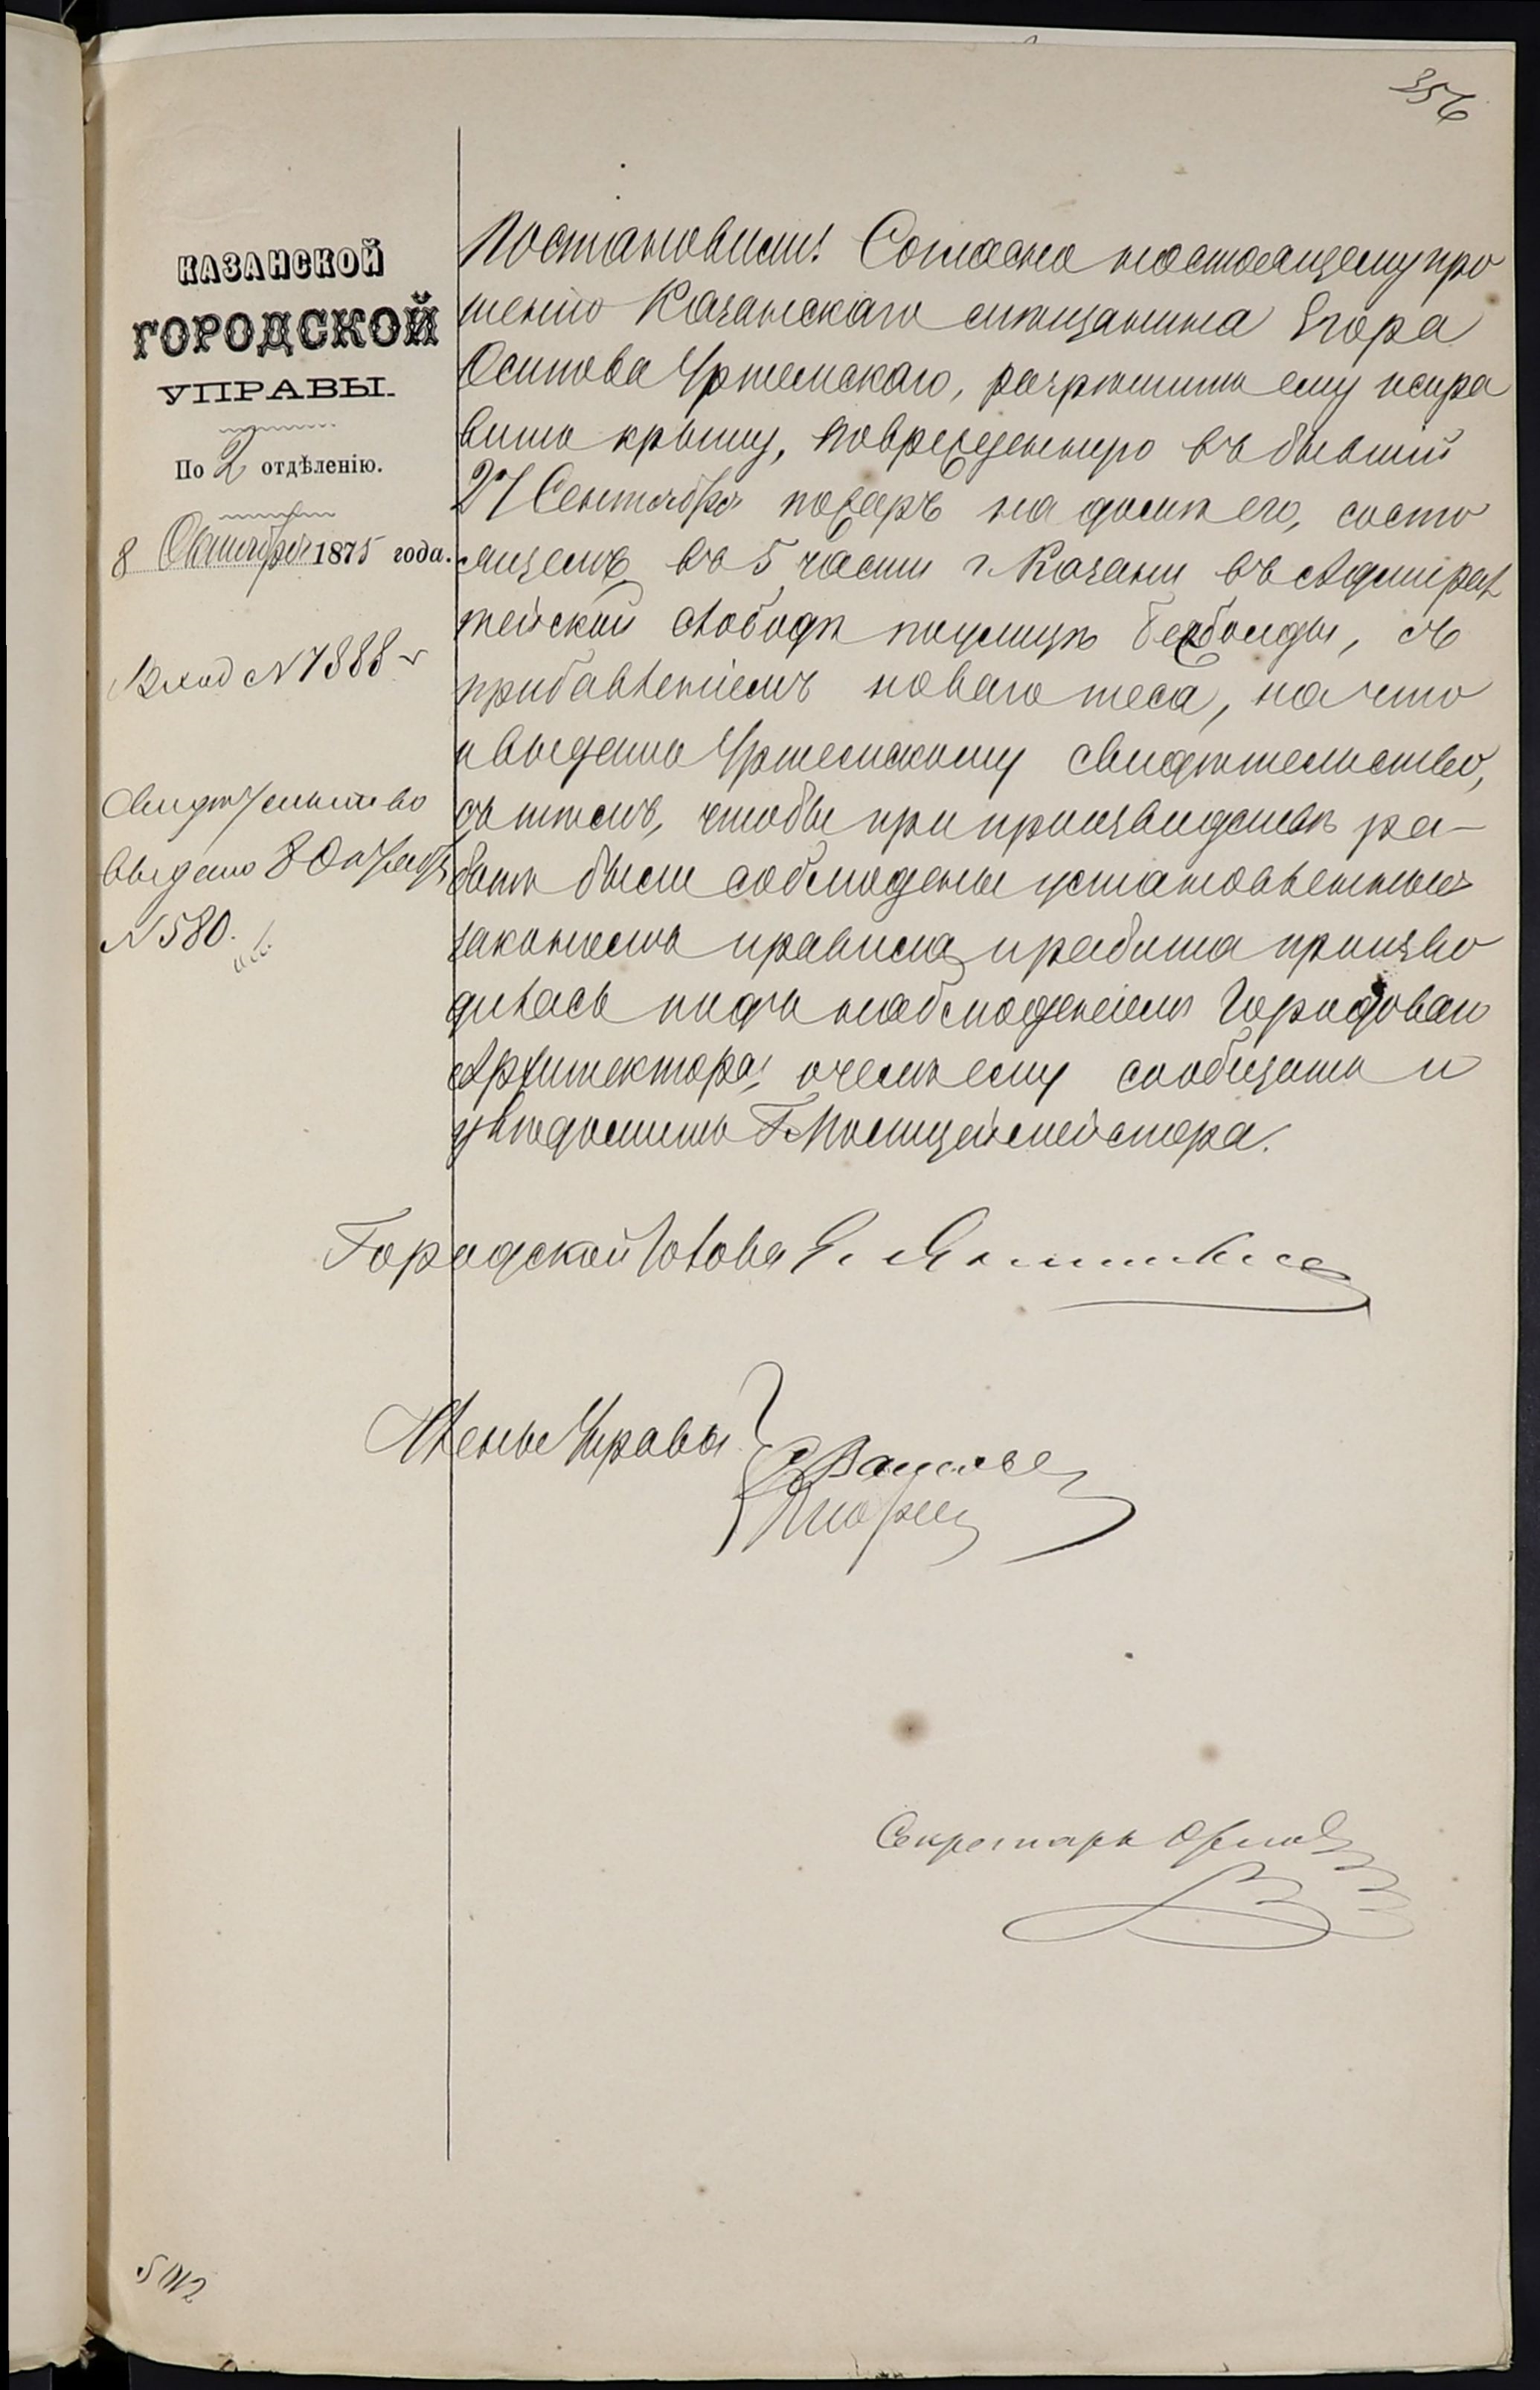 356
КАЗАНСКОЙ
ГОРОДСКОЙ
УПРАВЫ.
По 2 отдѣленію.
8 Октября 1875 года.
Вход № 7888
Свидѣтельство
выдано 8 Октября
№ 580.
Постановили: Согласно настоящему про
шенію Казанскаго мѣщанина Егора
Осипова Уржемскаго, разрѣшить ему испра
вить крышу, поврежденную въ бывшій
27 Сентября пожаръ на домѣ его, состо
ящемъ въ 5 части г. Казани въ Адмирал
тейской слободѣ по улицѣ, съ
прибавленіемъ новаго теса, на что
и выдать Уржемскому свидѣтельство,
съ тѣмъ, чтобы при производствѣ ра-
ботъ были соблюдены установленныя
закономъ правила и работа произво
дилась подъ наблюденіемъ Городоваго
Архитектора, о чемъ ему сообщить и
увѣдомить Г. Полицеймейстера.
Городской Голова
Члены Управы
Секретарь Орлов